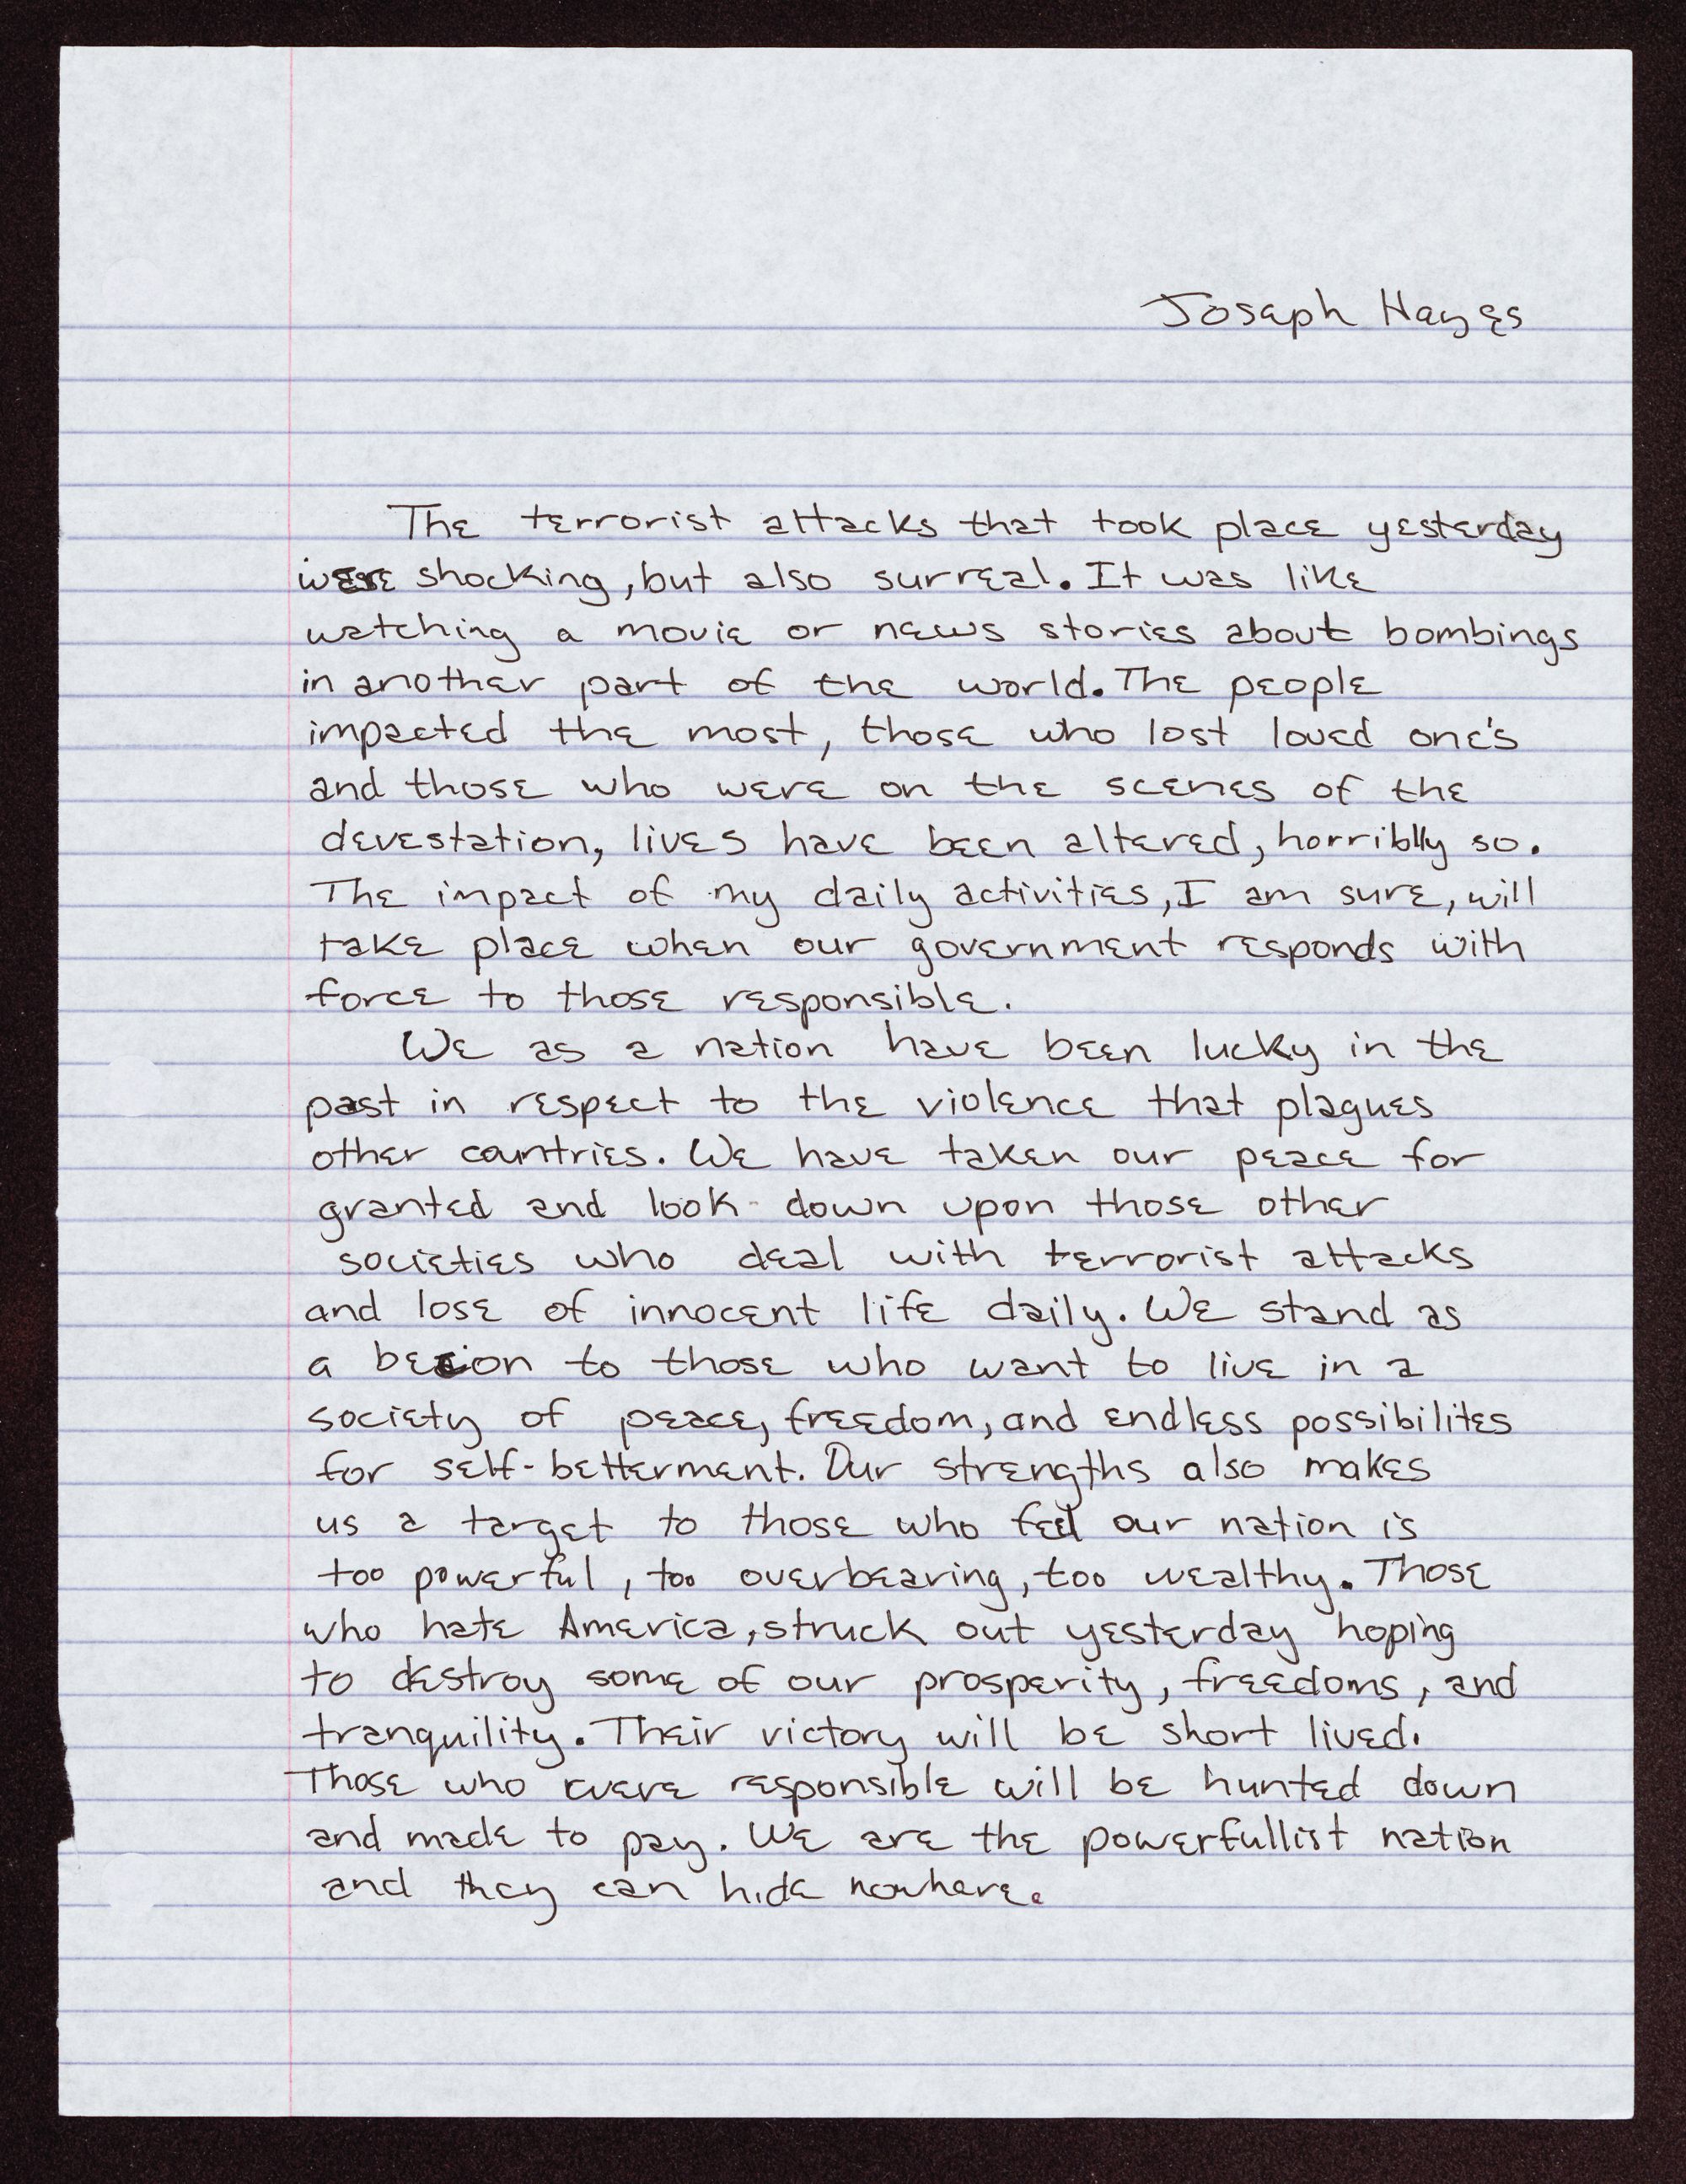 Joseph Hayes
The terrorist attacks that took place yesterday
were shocking, but also surreal. It was like
watching a movie or news stories about bombings
in another part of the world. The people
impacted the most, those who lost loved one's
and those who were on the scenes of the
devestation, lives have been altered, horriblly so.
The impact of my daily activities, I am sure, will
take place when our government responds with
force to those responsible.
We as a nation have been lucky in the
past in respect to the violence that plagues
other countries. We have taken our peace for
granted and look down upon those other
societies who deal with terrorist attacks
and lose of innocent life daily. We stand as
a becion to those who want to live in a
society of peace, freedom, and endless possibilites
for self-betterment. Our strengths also makes
us a target to those who feel our nation is
too powerful, too overbearing, too wealthy. Those
who hate America, struck out yesterday hoping
to destroy some of our prosperity, freedoms, and
tranquility. Their victory will be short lived.
Those who were responsible will be hunted down
and made to pay. We are the powerfullist nation
and they can hide nowhere.